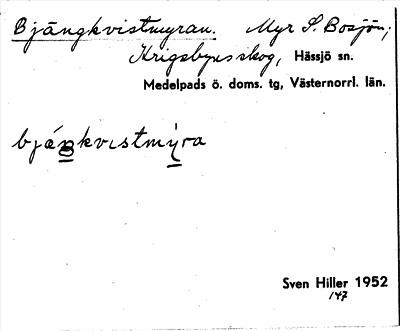 Bjängkvistmyran. Myr S. Bosjön,
Krigsbynsskog, Hässjö sn.
Medelpads ö. doms. tg, Västernorrl. län.
bjáŋkvıstmỳra
Sven Hiller 1952
147